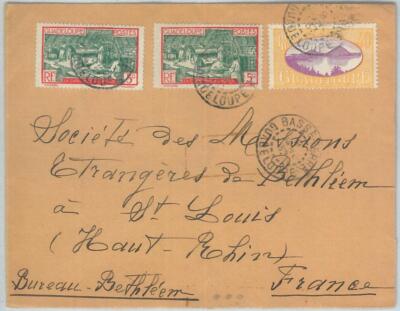 GUADELOUPE POSTES
RF
5c
GUADELOUPE POSTES
RF
5c
GUADELOUPE
GUADELOUPE
BASSE
GUADELOUPE
Société des Missions
Etrangères de Bethléem
à St Louis
(Haut-Rhin)
Bureau-Bethléem France